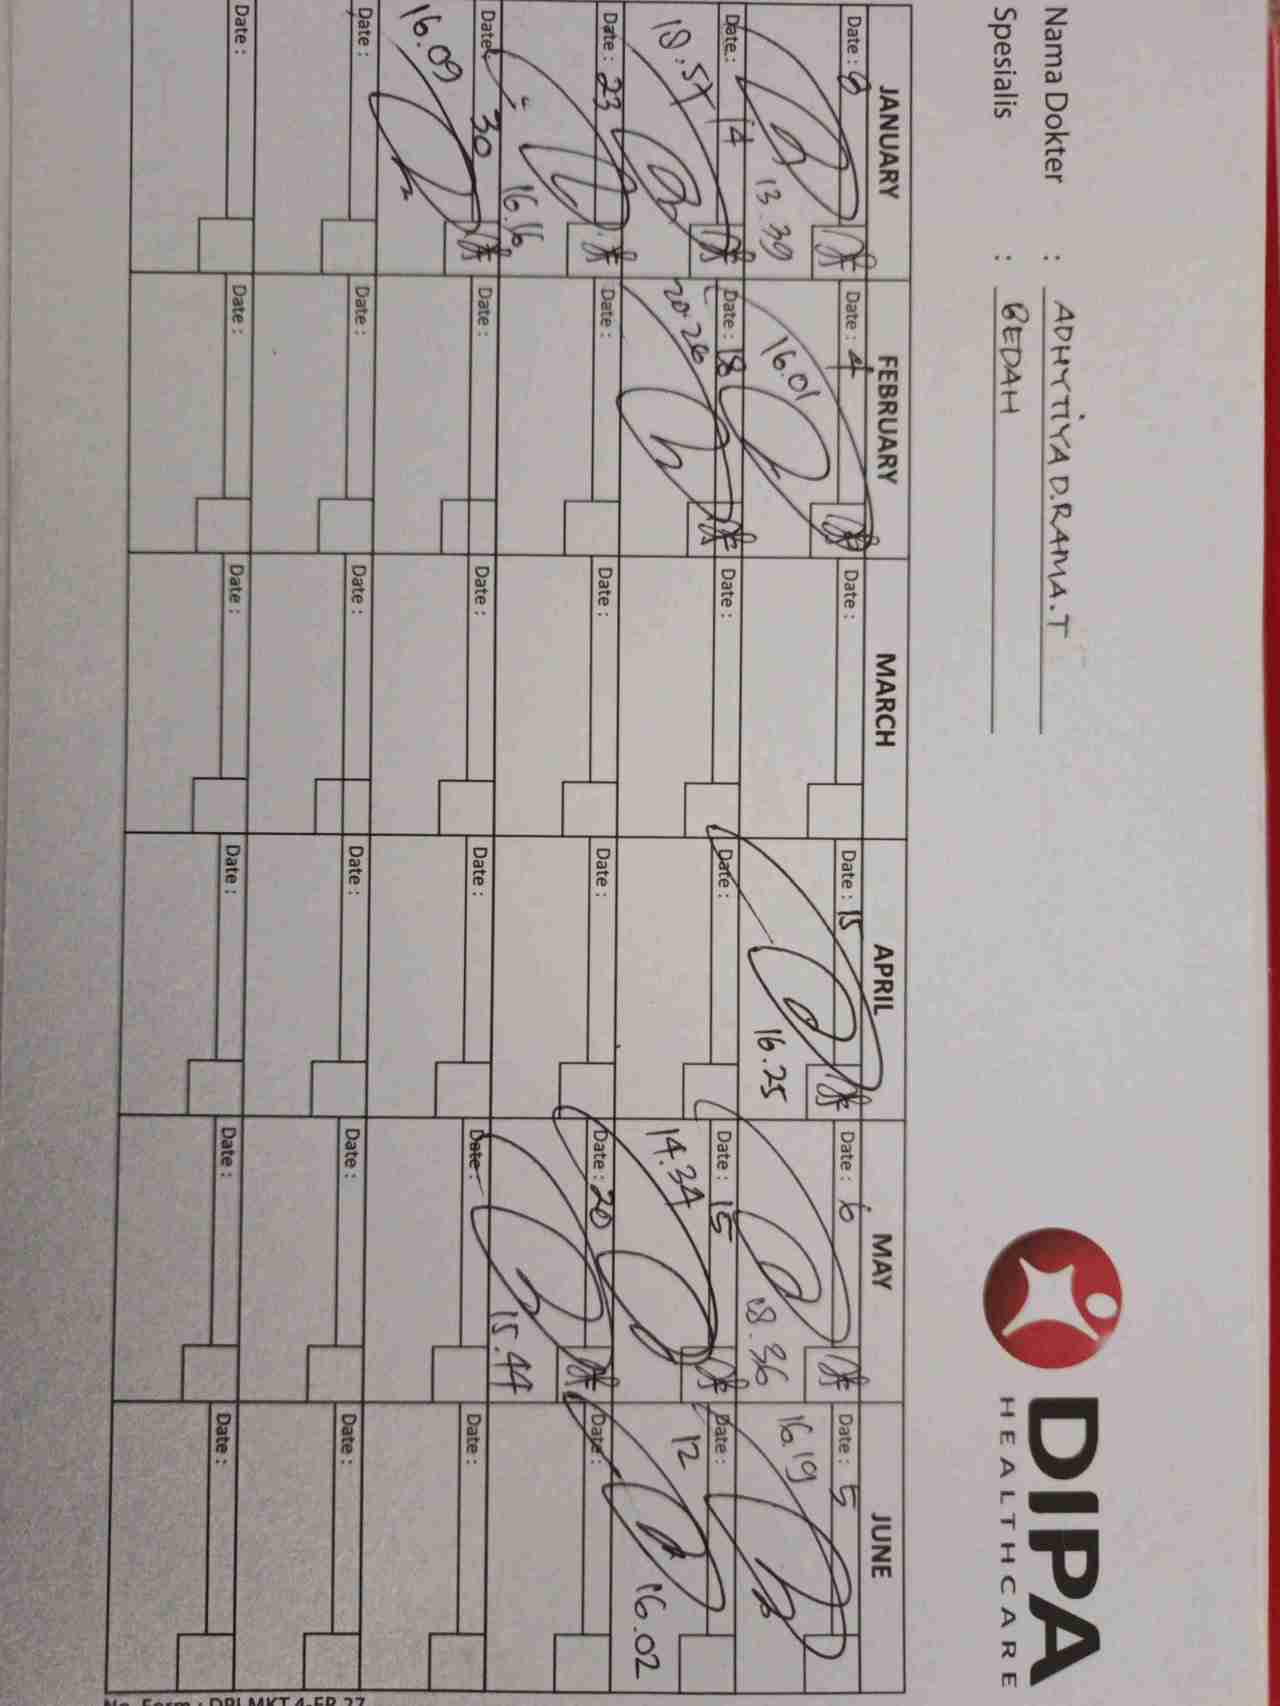 DIPA
HEALTHCARE
Nama Dokter : ADHYTIYA D.RAMA.T
Spesialis : BEDAH
JANUARY FEBRUARY MARCH APRIL MAY JUNE
Date : 8 Date : 4 Date : Date : 15 Date : 6 Date : 5
13.39 16.01 16.25 18.36 16.19
Date : 14 Date : 18 Date : Date : Date : 15 Date : 12
18.57 20.26 14.34 16.02
Date : 23 Date : Date : Date : Date : 20 Date :
16.16 15.44
Date : 30 Date : Date : Date : Date : Date :
16.09
Date : Date : Date : Date : Date : Date :
Date : Date : Date : Date : Date : Date :
No. Form : DPI.MKT.4-FR.27